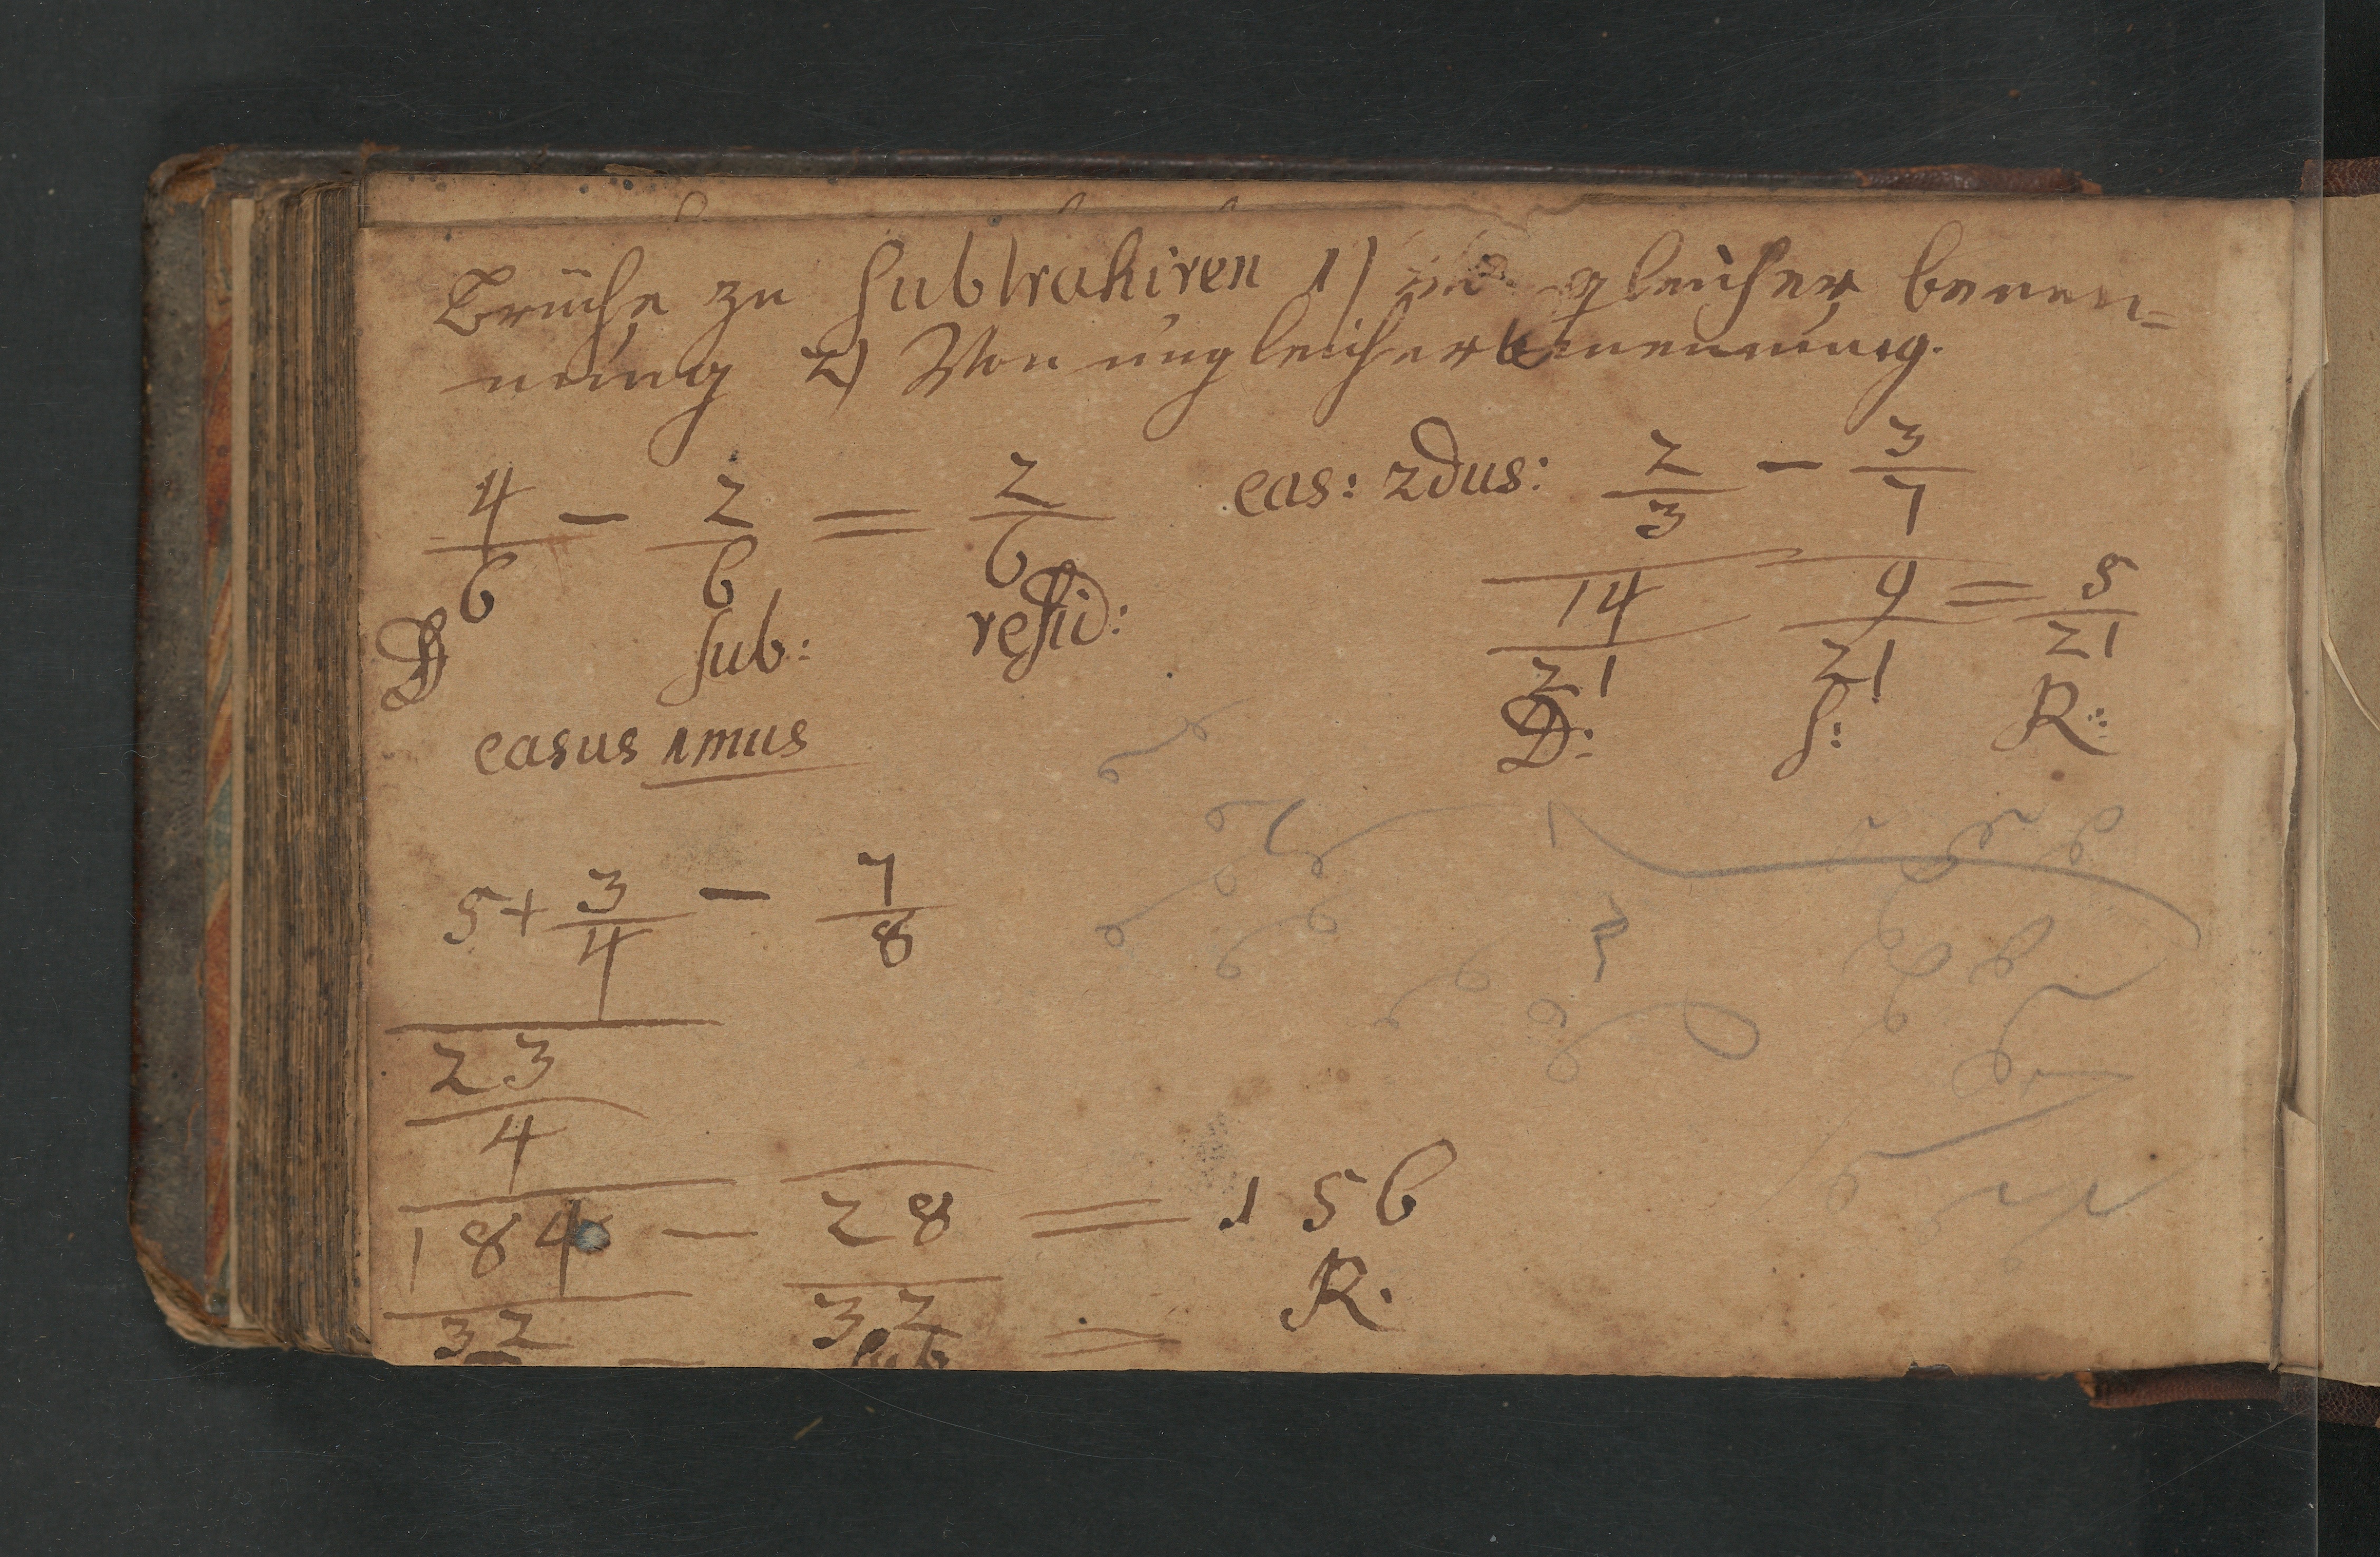 Brüche zu subtrahiren 1) gleicher benen=
nung 2) Von ungleicher benennung.
4/6 - 2/6 = 2/6
D sub: resid:
casus 1mus
cas: 2dus: 2/3 - 3/7
14/21 9/21 = 5/21
D: S: R:
5 + 3/4 - 7/8
23/4
184/32 - 28/32 = 156
R.
sub